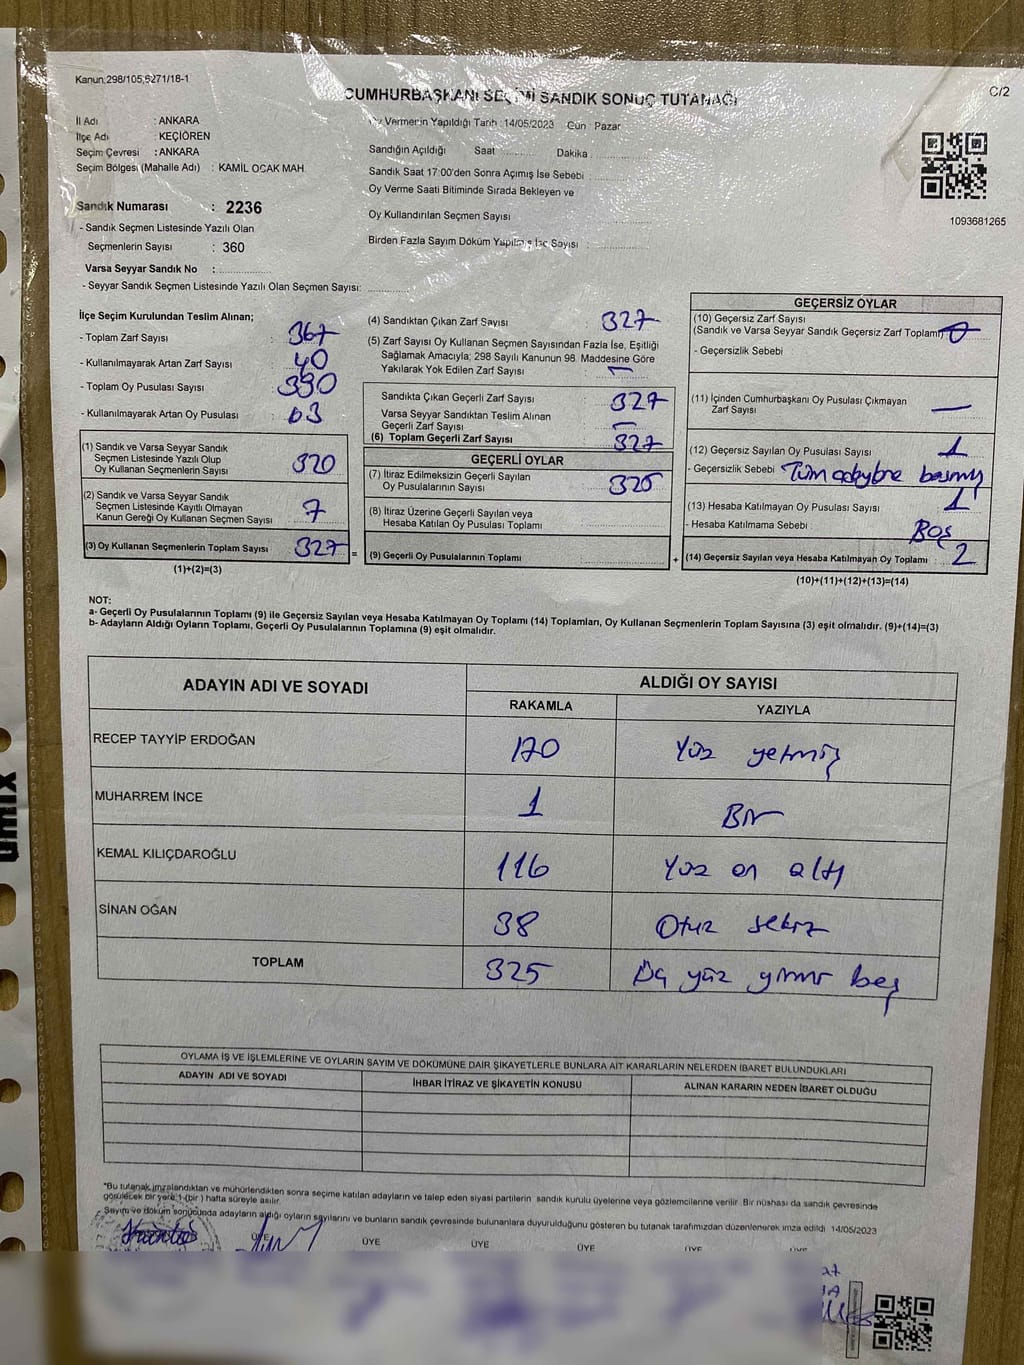 Kanun 298/105,6271/18-1
C/2
CUMHURBAŞKANI SEÇİMİ SANDIK SONUÇ TUTANAĞI
İl Adı : ANKARA
İlçe Adı : KEÇİÖREN
Seçim Çevresi : ANKARA
Seçim Bölgesi (Mahalle Adı) : KAMİL OCAK MAH.
Oy Vermenin Yapıldığı Tarih : 14/05/2023 Gün : Pazar
Sandığın Açıldığı Saat Dakika :
Sandık Saat 17:00'den Sonra Açımış İse Sebebi :
Oy Verme Saati Bitiminde Sırada Bekleyen ve
Oy Kullandırılan Seçmen Sayısı
Birden Fazla Sayım Döküm Yapılmış İse Sayısı :
1093681265
Sandık Numarası : 2236
- Sandık Seçmen Listesinde Yazılı Olan
Seçmenlerin Sayısı : 360
Varsa Seyyar Sandık No :
- Seyyar Sandık Seçmen Listesinde Yazılı Olan Seçmen Sayısı:
İlçe Seçim Kurulundan Teslim Alınan;
- Toplam Zarf Sayısı : 367
- Kullanılmayarak Artan Zarf Sayısı : 40
- Toplam Oy Pusulası Sayısı : 390
- Kullanılmayarak Artan Oy Pusulası : 63
(1) Sandık ve Varsa Seyyar Sandık
Seçmen Listesinde Yazılı Olup
Oy Kullanan Seçmenlerin Sayısı 320
(2) Sandık ve Varsa Seyyar Sandık
Seçmen Listesinde Kayıtlı Olmayan
Kanun Gereği Oy Kullanan Seçmen Sayısı 7
(3) Oy Kullanan Seçmenlerin Toplam Sayısı 327 =
(1)+(2)=(3)
(4) Sandıktan Çıkan Zarf Sayısı 327
(5) Zarf Sayısı Oy Kullanan Seçmen Sayısından Fazla İse, Eşitliği
Sağlamak Amacıyla; 298 Sayılı Kanunun 98. Maddesine Göre
Yakılarak Yok Edilen Zarf Sayısı : —
Sandıkta Çıkan Geçerli Zarf Sayısı 327
Varsa Seyyar Sandıktan Teslim Alınan
Geçerli Zarf Sayısı : —
(6) Toplam Geçerli Zarf Sayısı 327
GEÇERLİ OYLAR
(7) İtiraz Edilmeksizin Geçerli Sayılan
Oy Pusulalarının Sayısı 325
(8) İtiraz Üzerine Geçerli Sayılan veya
Hesaba Katılan Oy Pusulası Toplamı
(9) Geçerli Oy Pusulalarının Toplamı +
GEÇERSİZ OYLAR
(10) Geçersiz Zarf Sayısı
(Sandık ve Varsa Seyyar Sandık Geçersiz Zarf Toplamı) 0
- Geçersizlik Sebebi
(11) İçinden Cumhurbaşkanı Oy Pusulası Çıkmayan
Zarf Sayısı —
(12) Geçersiz Sayılan Oy Pusulası Sayısı 1
- Geçersizlik Sebebi Tüm basmış
(13) Hesaba Katılmayan Oy Pusulası Sayısı 1
- Hesaba Katılmama Sebebi Boş
(14) Geçersiz Sayılan veya Hesaba Katılmayan Oy Toplamı 2
(10)+(11)+(12)+(13)=(14)
NOT:
a- Geçerli Oy Pusulalarının Toplamı (9) ile Geçersiz Sayılan veya Hesaba Katılmayan Oy Toplamı (14) Toplamları, Oy Kullanan Seçmenlerin Toplam Sayısına (3) eşit olmalıdır. (9)+(14)=(3)
b- Adayların Aldığı Oyların Toplamı, Geçerli Oy Pusulalarının Toplamına (9) eşit olmalıdır.
ADAYIN ADI VE SOYADI ALDIĞI OY SAYISI
RAKAMLA YAZIYLA
RECEP TAYYİP ERDOĞAN 170 Yüz yetmiş
MUHARREM İNCE 1 Bir
KEMAL KILIÇDAROĞLU 116 Yüz on altı
SİNAN OĞAN 38 Otuz sekiz
TOPLAM 325 Üç yüz yirmi beş
OYLAMA İŞ VE İŞLEMLERİNE VE OYLARIN SAYIM VE DÖKÜMÜNE DAİR ŞİKAYETLERLE BUNLARA AİT KARARLARIN NELERDEN İBARET BULUNDUKLARI
ADAYIN ADI VE SOYADI İHBAR İTİRAZ VE ŞİKAYETİN KONUSU ALINAN KARARIN NEDEN İBARET OLDUĞU
*Bu tutanak imzalandıktan ve mühürlendikten sonra seçime katılan adayların ve talep eden siyasi partilerin sandık kurulu üyelerine veya gözlemcilerine verilir. Bir nüshası da sandık çevresinde
görülecek bir yere 1 (bir) hafta süreyle asılır.
Sayım ve döküm sonucunda adayların aldığı oyların sayılarını ve bunların sandık çevresinde bulunanlara duyurulduğunu gösteren bu tutanak tarafımızdan düzenlenerek imza edildi 14/05/2023
ÜYE ÜYE ÜYE ÜYE ÜYE ÜYE
umix